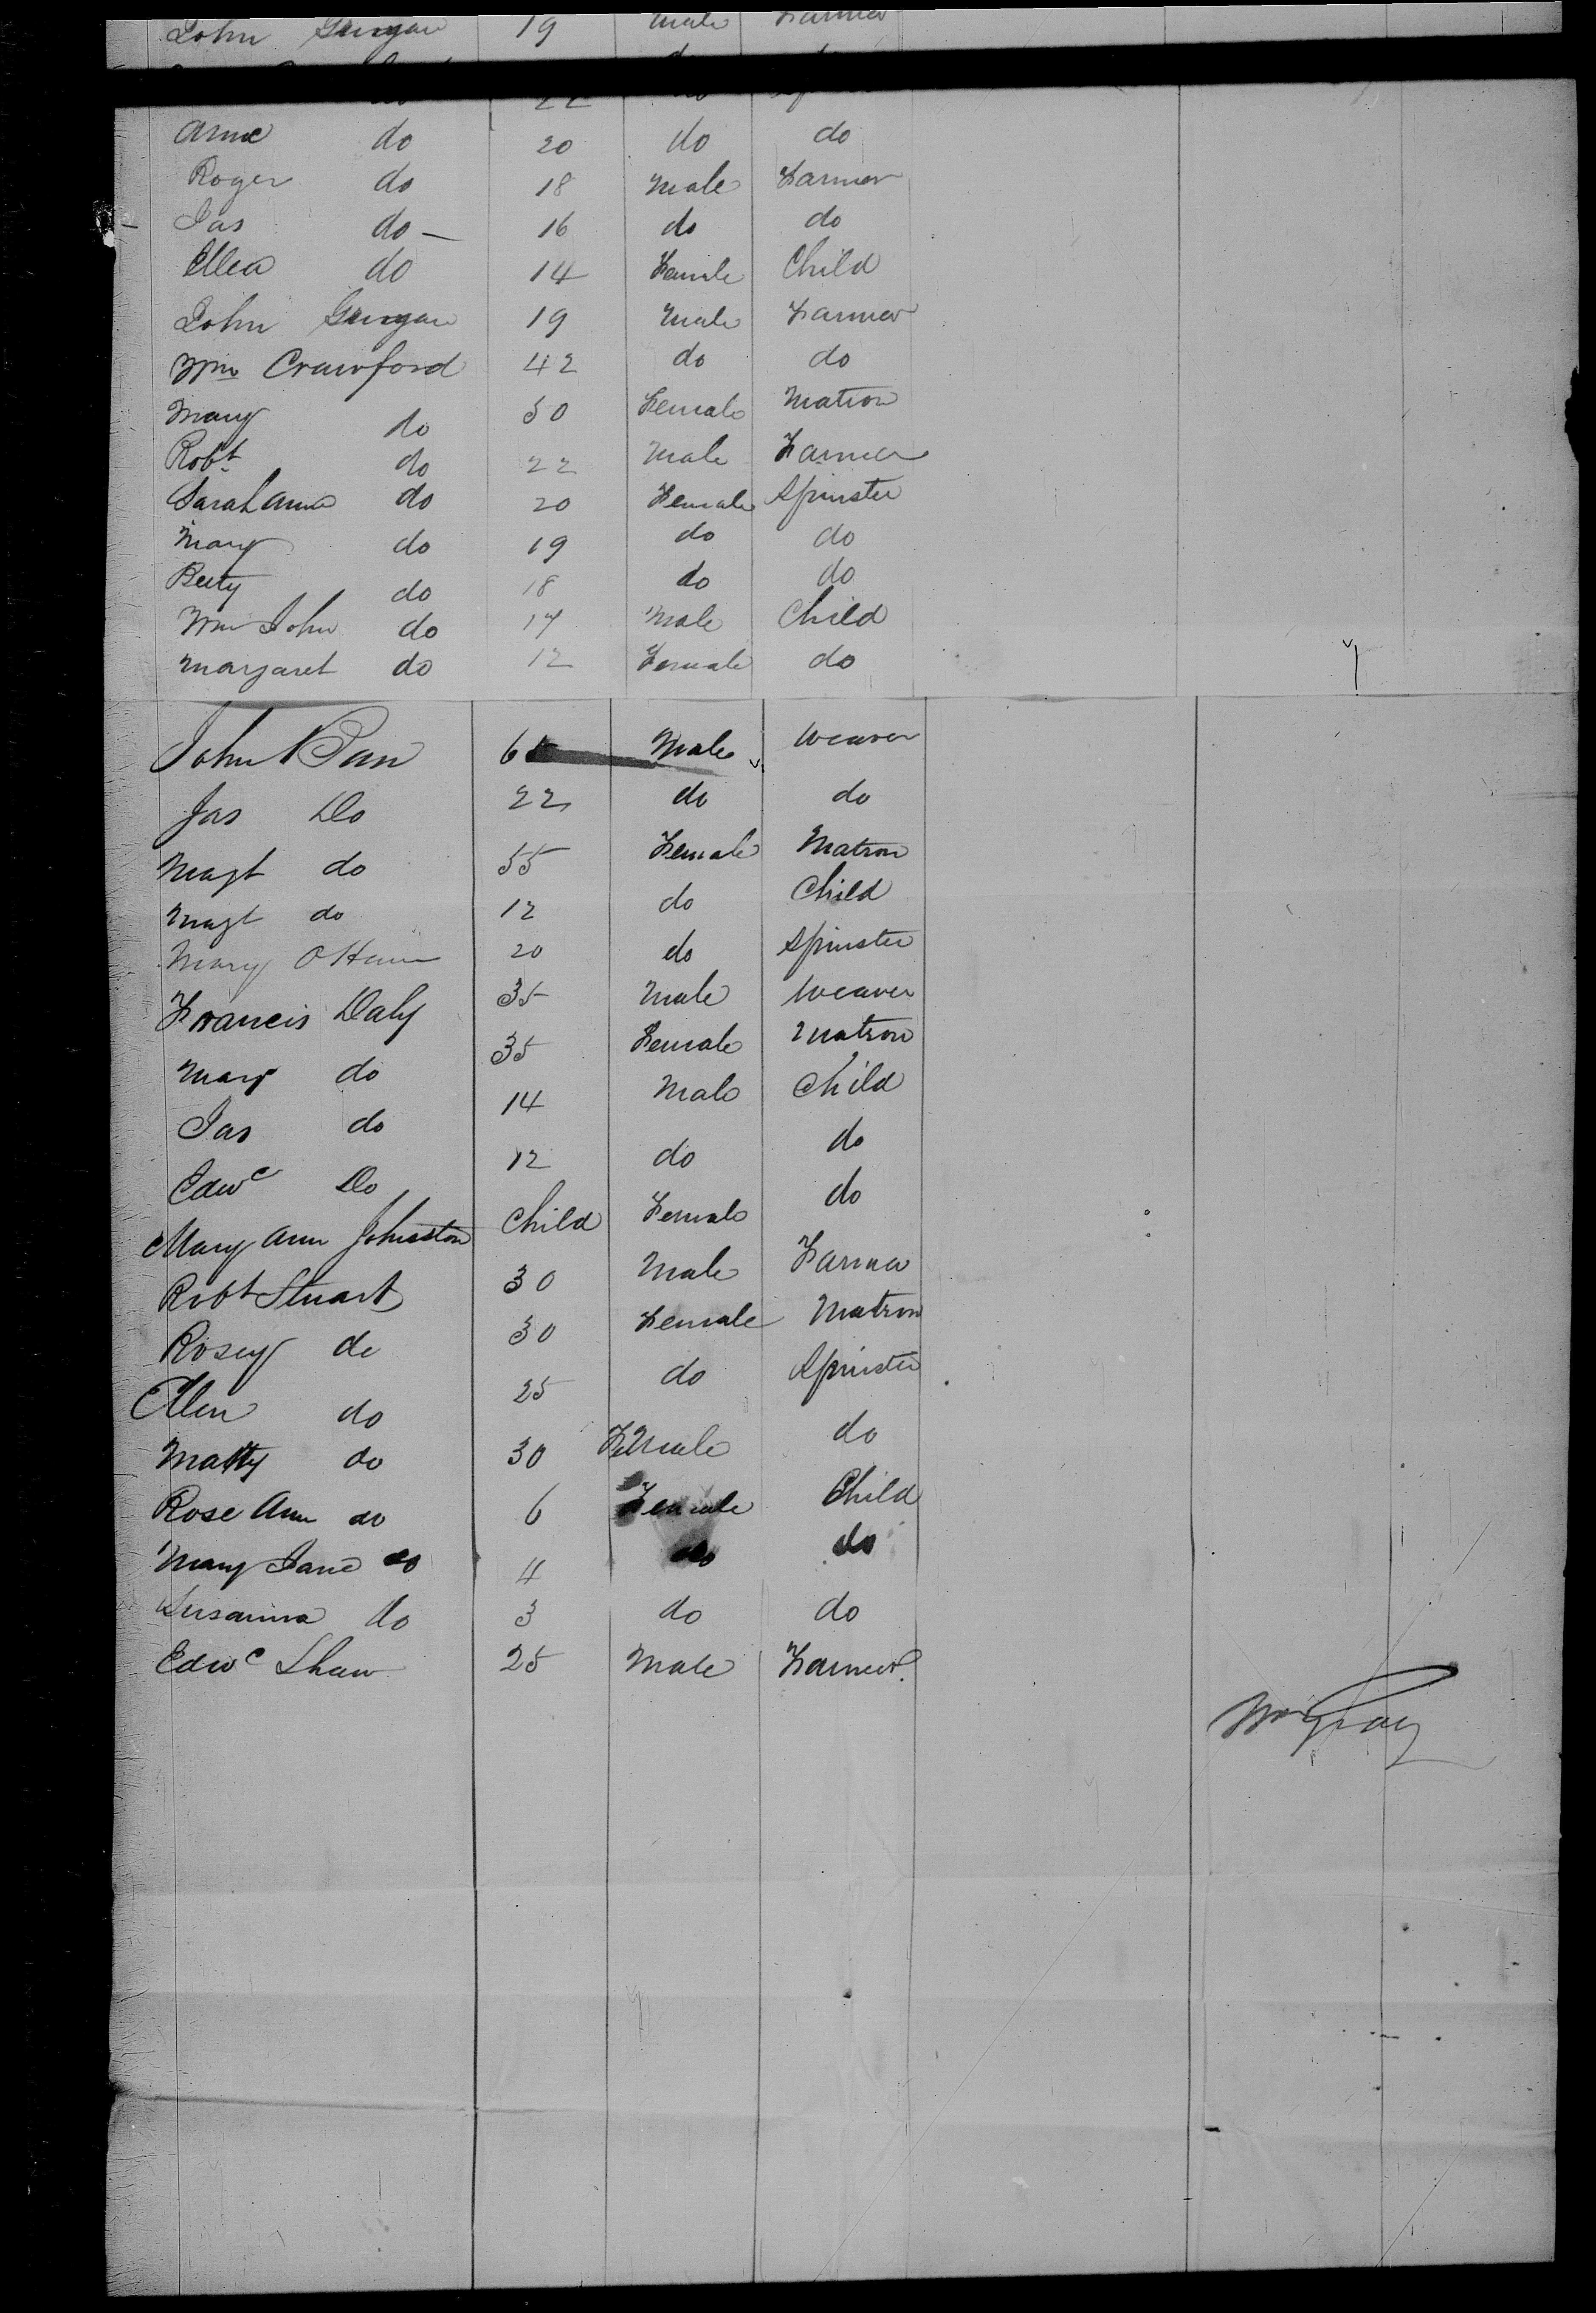 John Gungan 19 Male Farmer
do 22 do
Anne do 20 do do
Roger do 18 Male Farmer
Jas do — 16 do do
Ellen do 14 Female Child
John Gungan 19 Male Farmer
Wm Crawford 42 do do
Mary do 50 Female Matron
Robt do 22 Male Farmer
Sarah Anna do 20 Female Spinster
Mary do 19 do do
Betty do 18 do do
Wm John do 17 Male Child
Margaret do 12 Female do
John 6 Male Weaver
Jas Do 22 do do
Magt do 55 Female Matron
Magt do 12 do Child
Mary 20 do Spinster
Francis Daly 35 Male Weaver
Mary do 35 Female Matron
Jas do 14 Male Child
Edwd Do 12 do do
Mary Ann Johnston Child Female do
Robt Stuart 30 Male Farmer
Rosey do 30 Female Matron
Ellen do 25 do Spinster
Matty do 30 Female do
Rose Ann do 6 Female Child
Mary Jane do 4 do do
Susanna do 3 do do
Edwd Shaw 25 Male Farmer.
Wm Gray